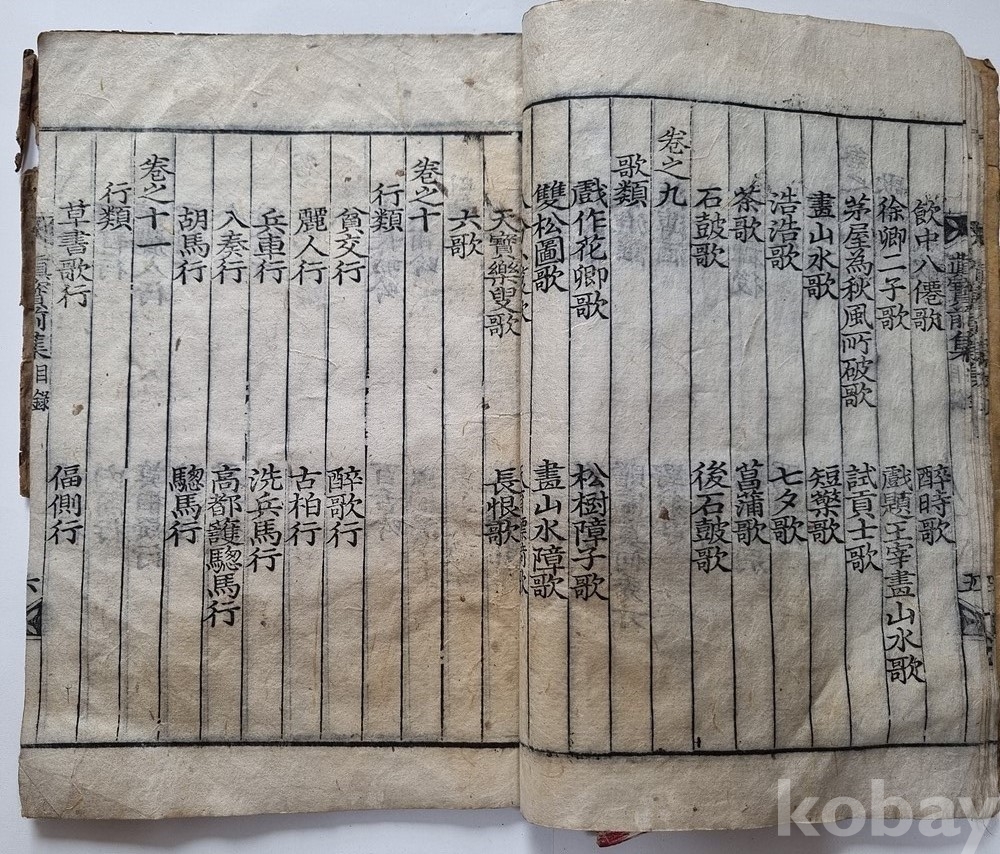 寶前集
五
飲中八僊歌 醉時歌
徐卿二子歌 戲題王宰畫山水歌
茅屋為秋風所破歌 試貢士歌
畫山水歌 短檠歌
浩浩歌 七夕歌
茶歌 菖蒲歌
石鼓歌 後石鼓歌
卷之九
歌類
戲作花卿歌 松樹障子歌
雙松圖歌 畫山水障歌
天寶樂叟歌 長恨歌
六歌
卷之十
行類
貧交行 醉歌行
麗人行 古柏行
兵車行 洗兵馬行
入奏行 高都護驄馬行
胡馬行 驄馬行
卷之十一
行類
草書歌行 偪側行
眞寶前集目錄
六
kobay